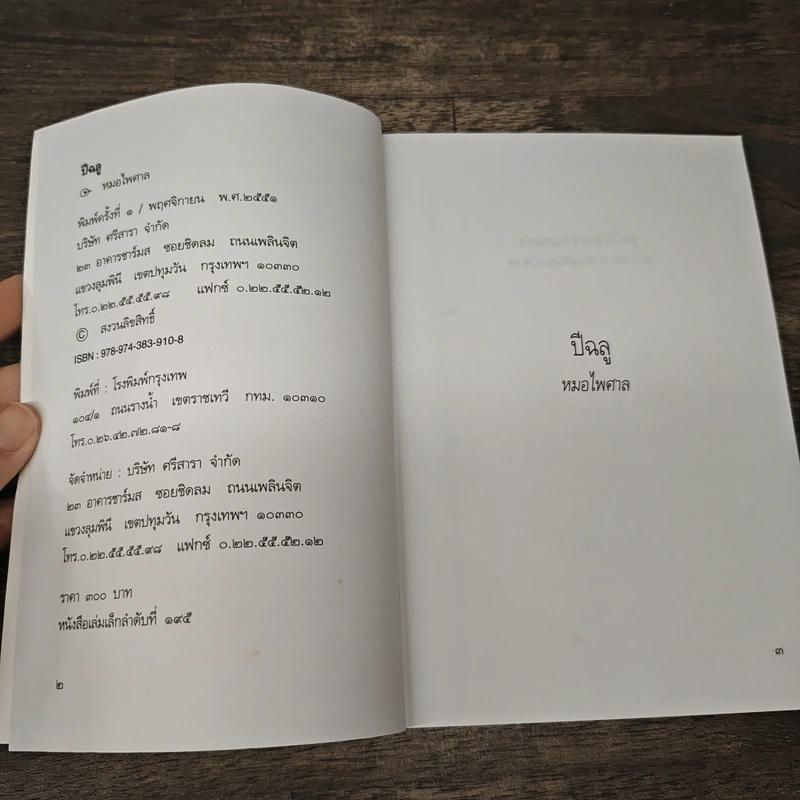 ปีฉลู
หมอไพศาล
พิมพ์ครั้งที่ ๑ / พฤศจิกายน พ.ศ.๒๕๕๑
บริษัท ศรีสารา จำกัด
๒๓ อาคารชาร์มส ซอยชิดลม ถนนเพลินจิต
แขวงลุมพินี เขตปทุมวัน กรุงเทพฯ ๑๐๓๓๐
โทร.๐.๒๒.๕๕.๕๕.๙๘ แฟกซ์ ๐.๒๒.๕๕.๕๒.๑๒
© สงวนลิขสิทธิ์
ISBN : 978-974-383-910-8
พิมพ์ที่ : โรงพิมพ์กรุงเทพ
๑๐๔/๑ ถนนรางน้ำ เขตราชเทวี กทม. ๑๐๓๑๐
โทร.๐.๒๖.๔๒.๗๒.๘๑-๘
จัดจำหน่าย : บริษัท ศรีสารา จำกัด
๒๓ อาคารชาร์มส ซอยชิดลม ถนนเพลินจิต
แขวงลุมพินี เขตปทุมวัน กรุงเทพฯ ๑๐๓๓๐
โทร.๐.๒๒.๕๕.๕๕.๙๘ แฟกซ์ ๐.๒๒.๕๕.๕๒.๑๒
ราคา ๓๐๐ บาท
หนังสือเล่มเล็กลำดับที่ ๑๙๕
๒
ปีฉลู
หมอไพศาล
๓